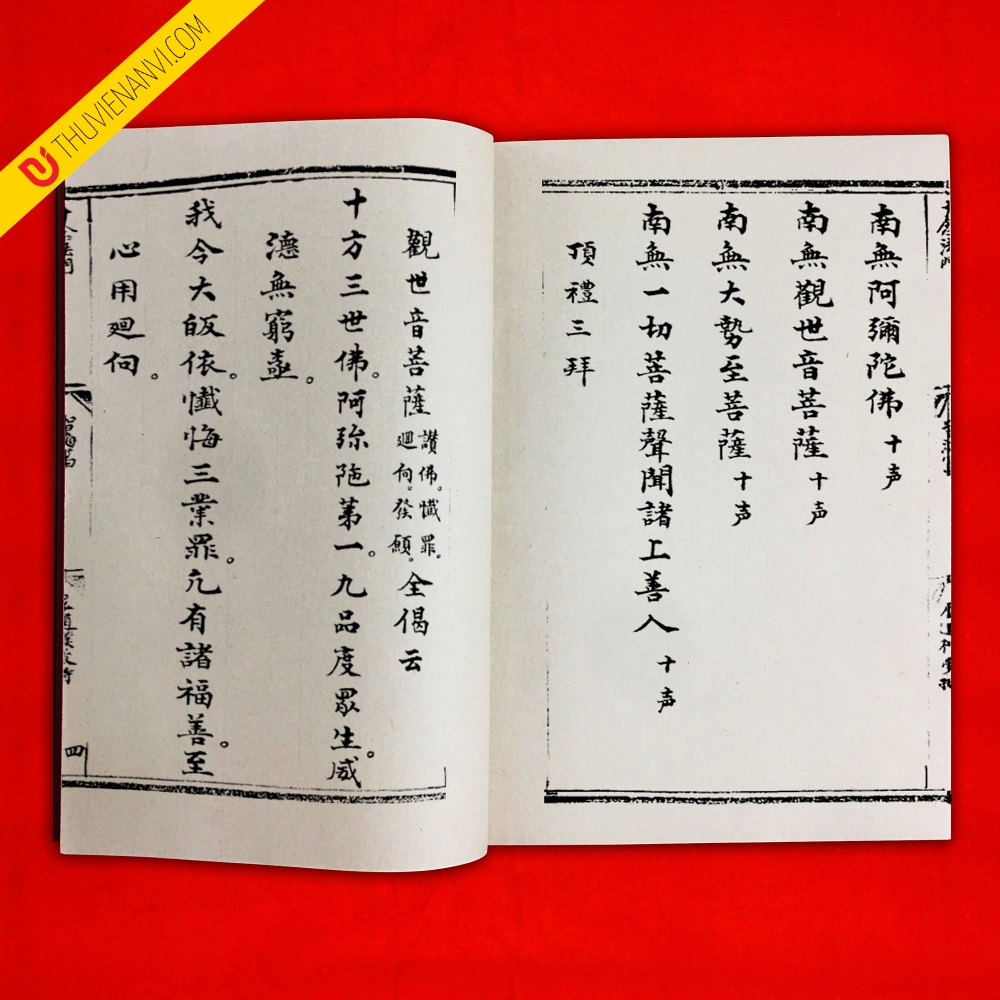 THUVIENANVI.COM
南無阿彌陀佛十声
南無觀世音菩薩十声
南無大勢至菩薩十声
南無一切菩薩聲聞諸上善人十声
頂禮三拜
觀世音菩薩讃佛。懺罪。廻向。發願。全偈云
十方三世佛。阿弥陁第一。九品度眾生。威
德無窮𡗉。
我今大皈依。懺悔三業罪。凢有諸福善。至
心用廻向。
四